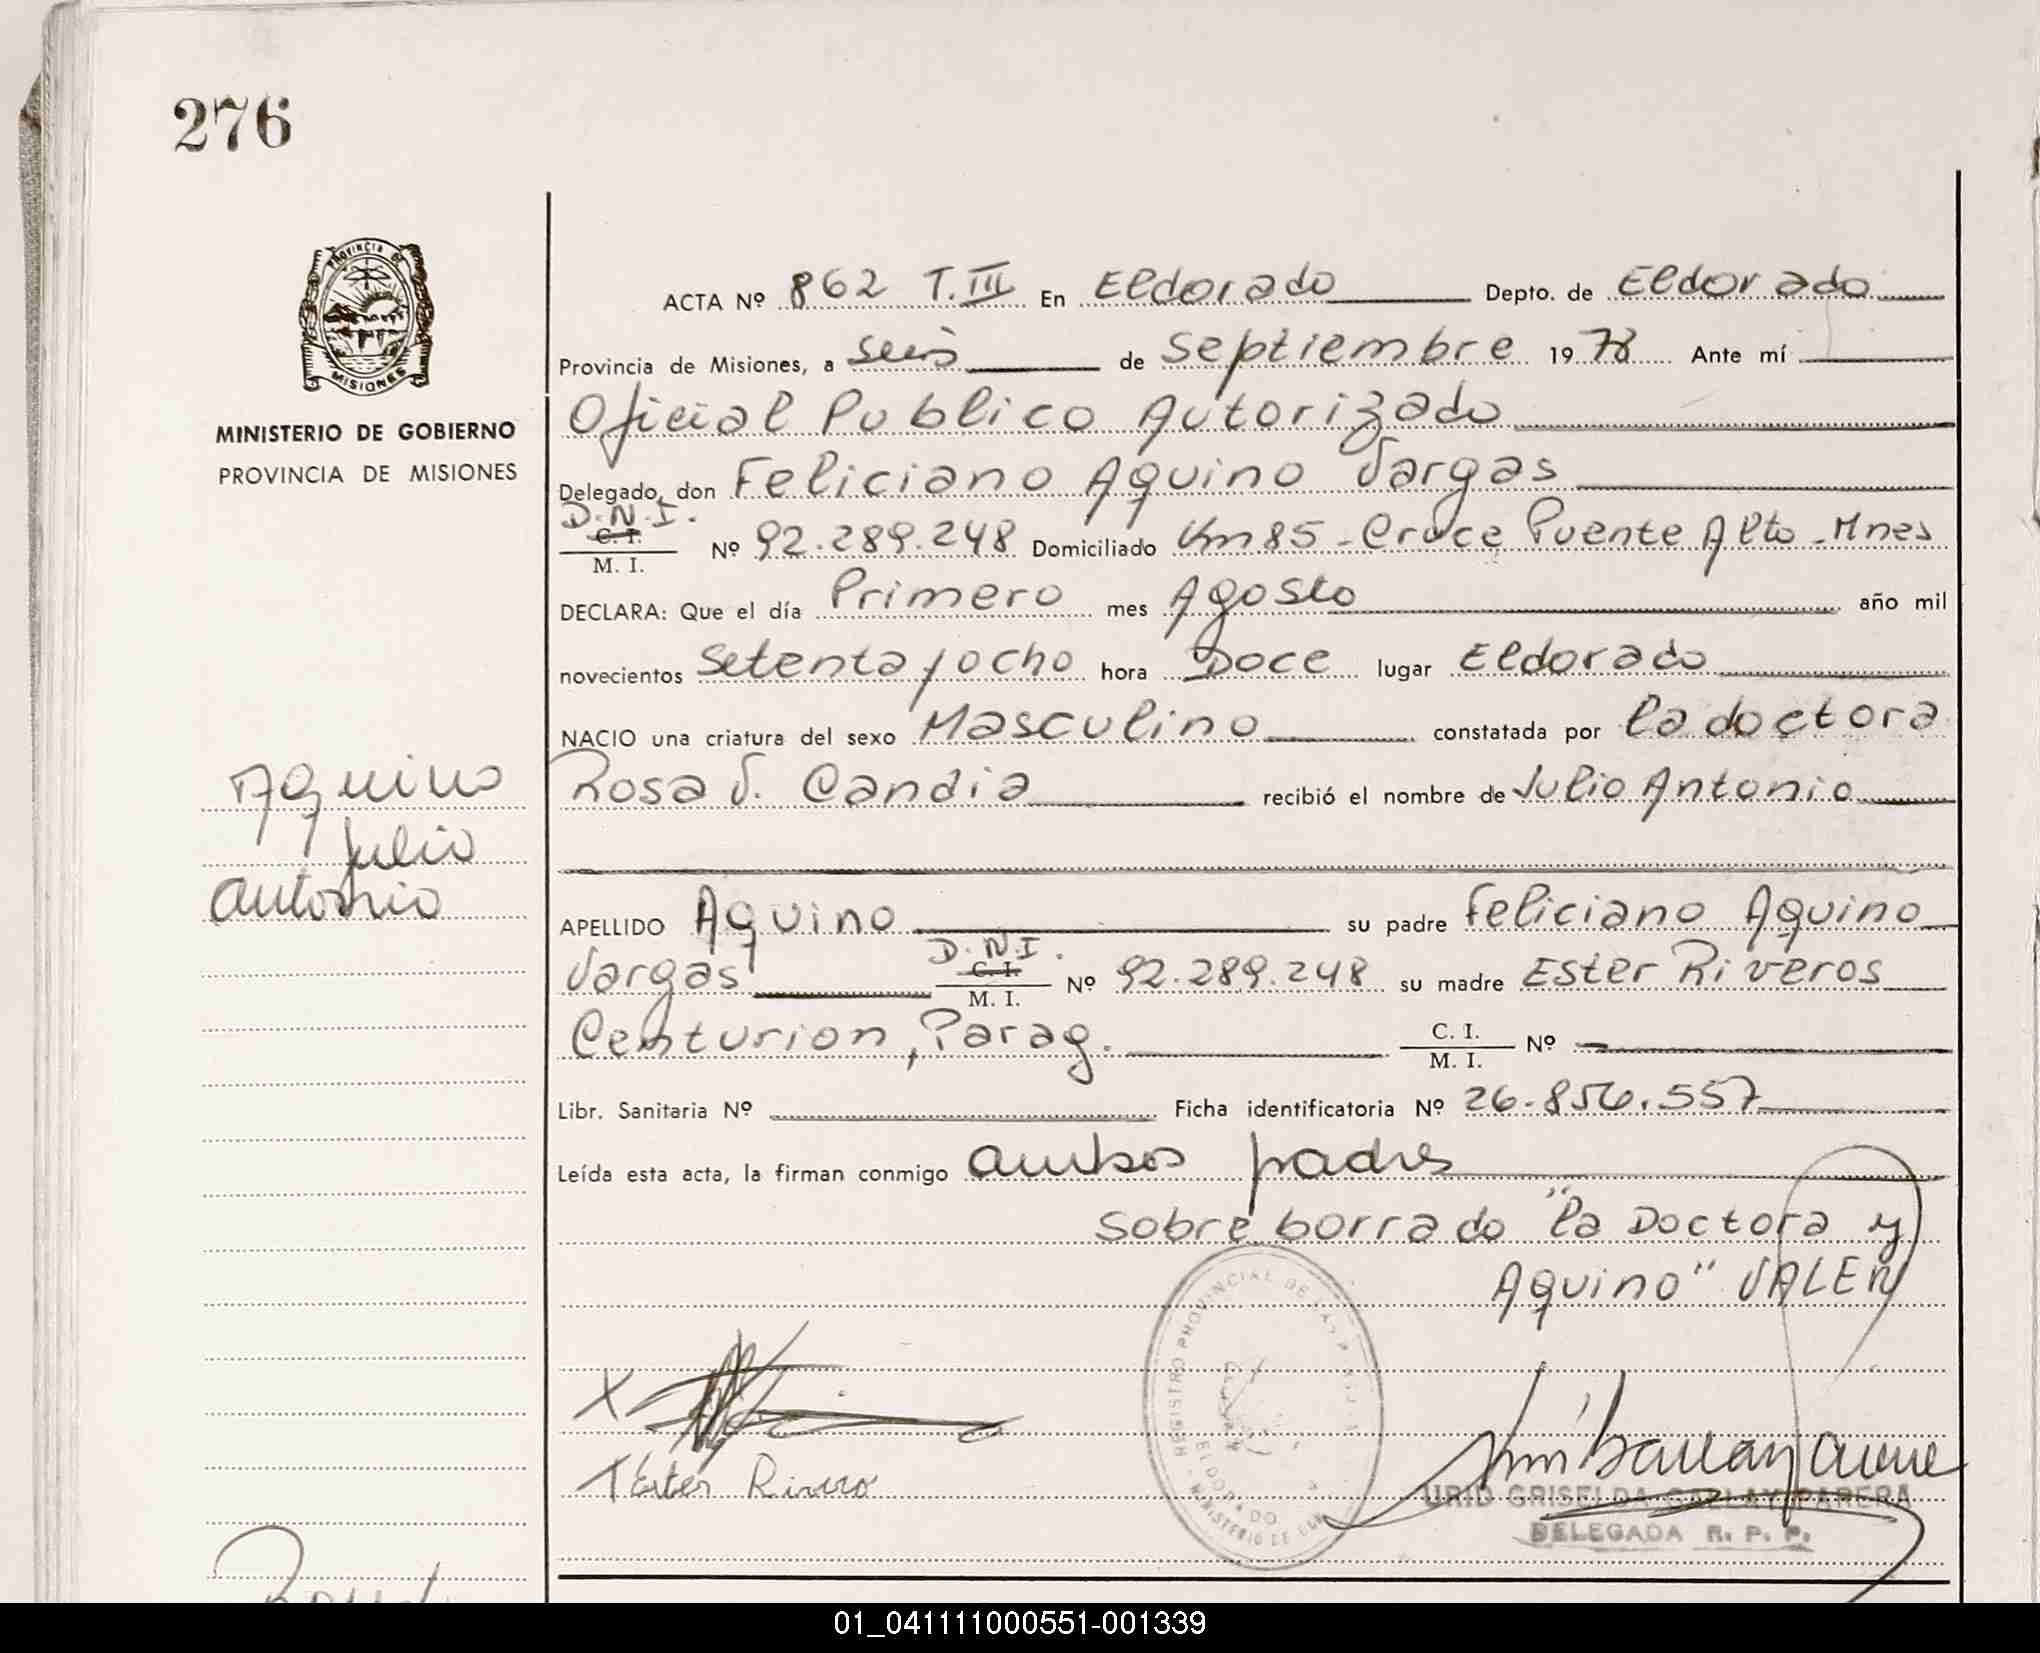 276
PROVINCIA DE
MISIONES
MINISTERIO DE GOBIERNO
PROVINCIA DE MISIONES
ACTA Nº 862 T.III En Eldorado Depto. de Eldorado
Provincia de Misiones, a seis de septiembre 1978 Ante mí
Oficial Publico Autorizado
Delegado, don Feliciano Aquino Vargas
D.N.I.
C. I.
M. I. Nº 92.289.248 Domiciliado Km 85 - Cruce Puente Alto - Mnes
DECLARA: Que el día Primero mes Agosto año mil
novecientos setenta y ocho hora Doce lugar Eldorado
NACIO una criatura del sexo Masculino constatada por la doctora
Rosa V. Candia recibió el nombre de Julio Antonio
Aquino
Julio
Antonio
APELLIDO Aquino su padre Feliciano Aquino
Vargas D.N.I. C. I. M. I. Nº 92.289.248 su madre Ester Riveros
Centurion, Parag. C. I. M. I. Nº
Libr. Sanitaria Nº Ficha identificatoria Nº 26.856.557
Leída esta acta, la firman conmigo ambos padres
Sobre borrado "la Doctora y
Aquino" VALEN
X
X Ester Rivero
REGISTRO PROVINCIAL DE LAS
ELDORADO
MINISTERIO DE
GRISELDA PARERA
DELEGADA R. P. P.
01_041111000551-001339